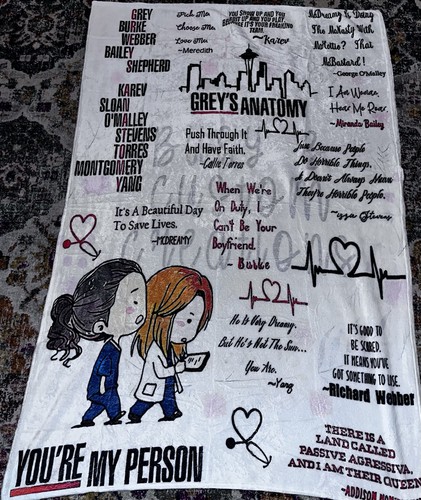 GREY
BURKE
WEBBER
BAILEY
SHEPHERD
KAREV
SLOAN
O'MALLEY
STEVENS
TORRES
MONTGOMERY
YANG
Pick Me,
Choose Me,
Love Me
~Meredith
YOU SHOW UP AND YOU
AND YOU PLAY
LIKE IT'S YOUR FREAKING
TEAM.
~Karev
GREY'S ANATOMY
McDreamy Is Doing
The McNasty With
McHottie? That
McBastard!
~George O'Malley
I Am Woman,
Hear Me Roar.
~Miranda Bailey
Push Through It
And Have Faith.
-Callie Torres
Just Because People
Do Horrible Things,
It Doesn't Always Mean
They're Horrible People.
~Izzie Stevens
When We're
On Duty, I
Can't Be Your
Boyfriend.
~ Burke
It's A Beautiful Day
To Save Lives.
~MCDREAMY
He Is Very Dreamy.
But He's Not The Sun...
You Are.
~Yang
IT'S GOOD TO
BE SCARED.
IT MEANS YOU'VE
GOT SOMETHING TO LOSE.
~Richard Webber
YOU'RE MY PERSON
THERE IS A
LAND CALLED
PASSIVE AGRESSIVA,
AND I AM THEIR QUEEN
~ADDISON